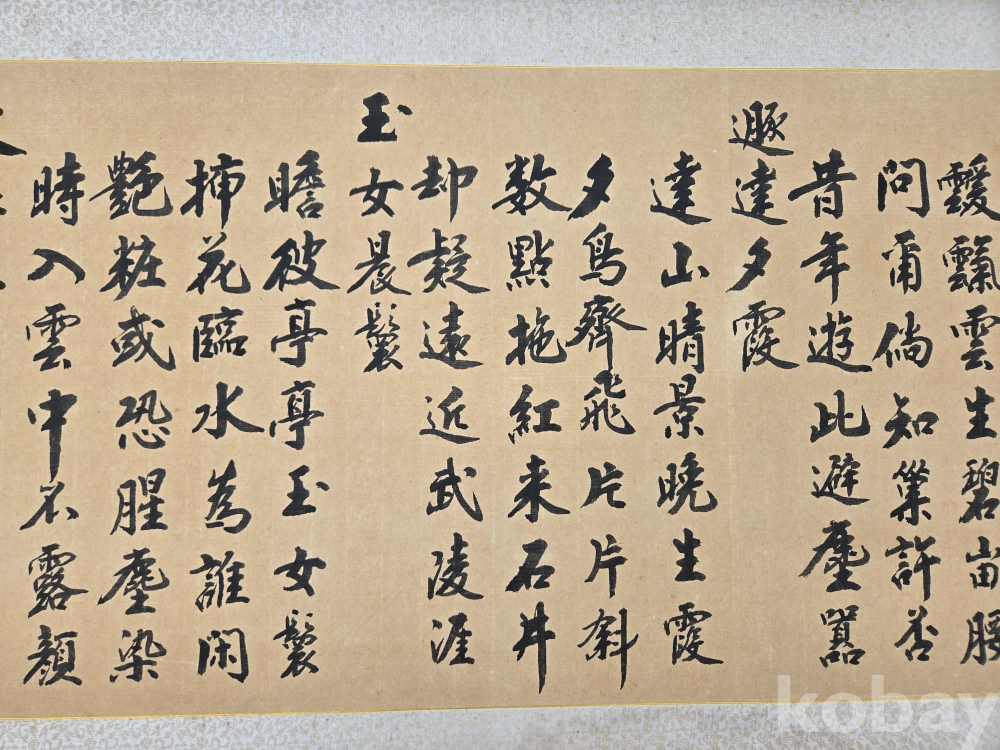 靉靆雲生碧峀腰
問爾倘知巢許否
昔年遊此避塵囂
遯達夕霞
達山晴景晩生霞
夕鳥齊飛片片斜
数點拖紅来石井
却疑遠近武陵涯
玉女晨鬟
瞻彼亭亭玉女鬟
挿花臨水為誰閑
艶粧或恐腥塵染
時入雲中不露顔
kobay